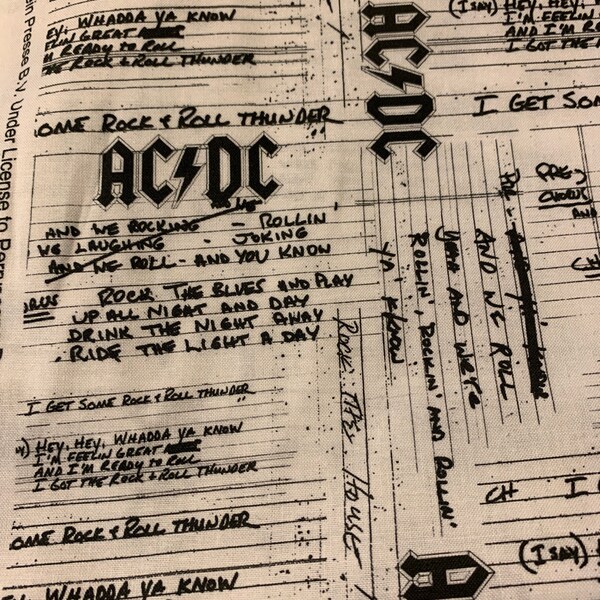 in Presse B.V. Under License to Pera
EY, WHADDA YA KNOW
GREAT
READY TO ROLL
ROCK & ROLL THUNDER
OME ROCK & ROLL THUNDER
AC/DC
AND WE ROCKING - ROLLIN'
WE LAUGHING - JOKING
AND WE ROLL - AND YOU KNOW
ROCK THE BLUES AND PLAY
UP ALL NIGHT AND DAY
DRINK THE NIGHT AWAY
RIDE THE LIGHT A DAY
I GET SOME ROCK & ROLL THUNDER
HEY, HEY, WHADDA YA KNOW
I'M FEELIN GREAT
AND I'M READY TO ROLL
I GOT THE ROCK & ROLL THUNDER
OME ROCK & ROLL THUNDER
WHADDA YA KNOW
AC/DC
(I SAY) HEY, HEY,
I'M FEELIN
AND I'M RE
I GOT THE
I GET SOM
PRE-
CHORUS
AND
PRE-
AND WE ROLL
YEAH AND WE'RE
ROLLIN', ROCKIN' AND ROLLIN'
YA KNOW
ROCK THIS HOUSE
CH I
(I SAY)
A